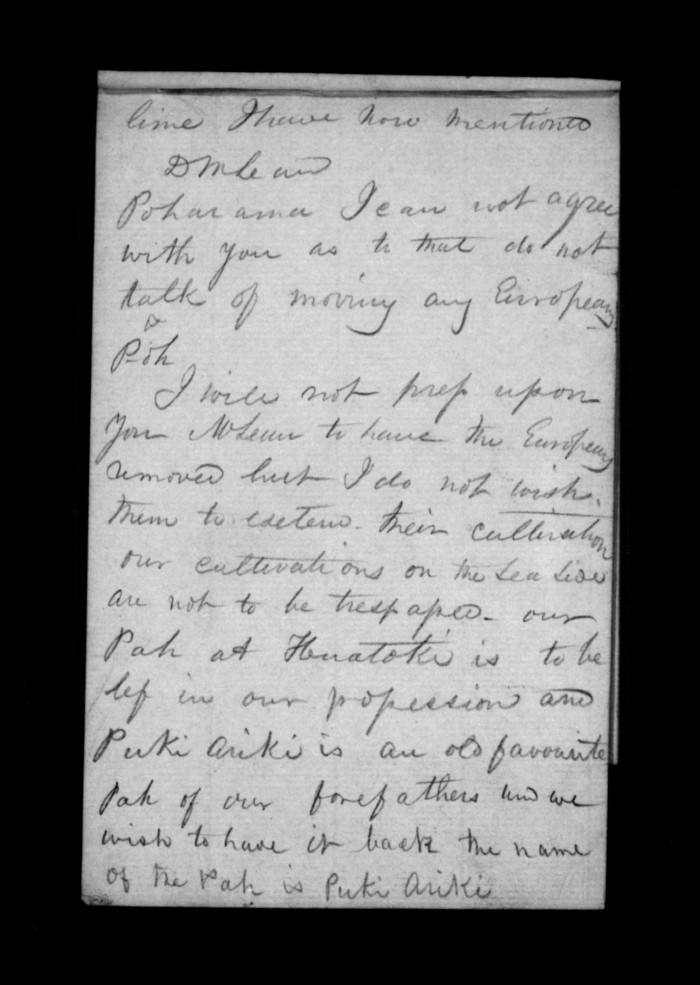 line I have now mentioned
D McLean
Poharama I can not agree
with you as to that do not
talk of moving any Europeans
Poh
I will not press upon
You McLean to have the Europeans
removed but I do not wish
them to extend their cultivation
our cultivations on the Sea Side
are not to be trespassed - our
Pah at Huatoki is to be
lef in our possession and
Puki Ariki is an old favourite
Pah of our forefathers and we
wish to have it back the name
of the Pah is Puki Ariki